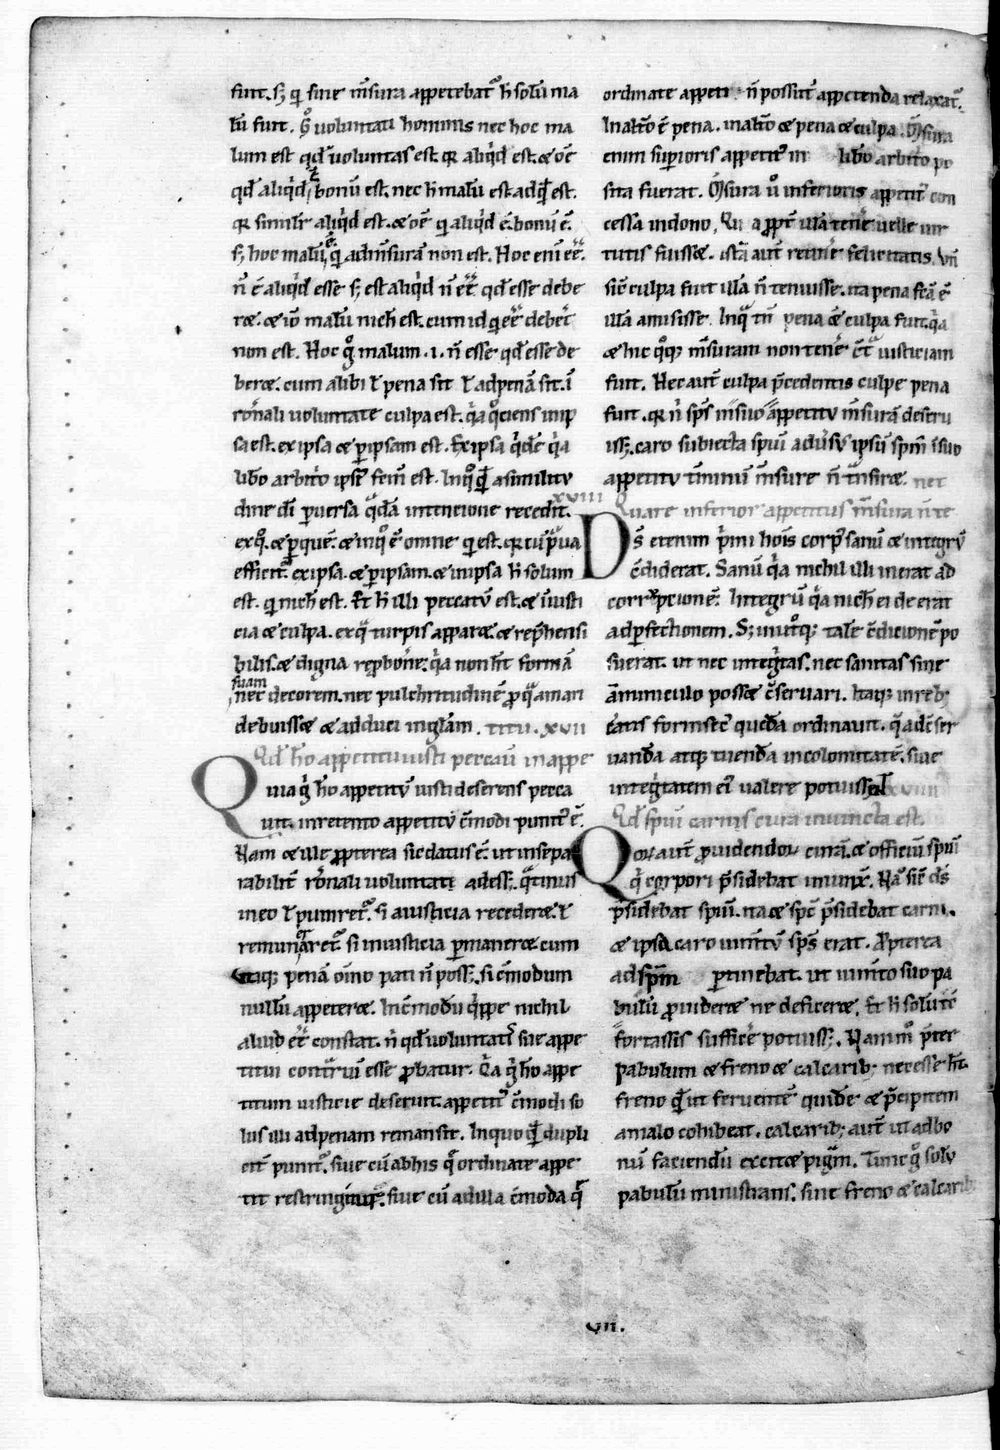 fuit. sꝫ q̇ sine m̄sura appetebat᷑ h̄ solū ma
lū fuit. Ꝙ̉ voluntati hominis nec hoc ma
lum est qđ voluntas est. qꝛ aliq̇d est. ⁊ om̄e
qđ aliq̇d, bonū est. nec h̄ malū est ad qđ est.
qꝛ similit̄ aliq̇d est. ⁊ om̄e q̇ aliq̇d ē. bonū ē.
sꝫ hoc malū ē q̇ ad m̄surā non est. Hoc eni ēē.
n̄ ē aliq̇d esse sꝫ est aliq̇d n̄ ēē qđ esse debe
ret. ⁊ iō malū nich̄ est. cum id q̇ ēē deberet
non est. Hoc ḡ malum .i. n̄ esse qđ esse de
beret. cum alibi ł pena sit ł ad penā sit. ī
rōnali voluntate culpa est. q̇a q̊ciens imp
sa est. ex ipsa ⁊ ꝑ ipsam est. Ex ipsa q̇dē q̇a
lib̄o arbit̊o ipsi᷒ fem̄ est. In q̊ qđ a similitu
dine dī ꝑuersa q̄dā intencione recedit.
ex q̊. ⁊ ꝑ quē. ⁊ in q̊ ē omne q̇ est. qꝛ tū ꝑua
efficit᷑. ex ipsa. ⁊ ꝑ ipsam. ⁊ in ipsa h̄ solum
est. q̇ nich̄ est. Et h̄ illi peccatū est. ⁊ iniusti
cia ⁊ culpa. ex q̇ turpis apparet. ⁊ rep̄hensi
bilis. ⁊ digna reꝓbōne. q̇a non h̄t formā
suam
nec decorem. nec pulchritudinē ꝓ q̇ amari
debuisset ⁊ adduci in gl̄am. titu. xvii
Qđ hō appetitu iusti peccaū in appe
Quia ḡ hō appetitū iusti deserens pecca
uit. in retento appetitu c̄modi punit᷑ ē.
Nam ⁊ ille ꝓpterea sic datus ē. ut insepa
rabilit̄ rōnali voluntati adess&. q̄tinus
in eo ł puniret᷑. si a iusticia recederet. ł
remunaret᷑ si in iusticia ꝑmaneret cum
utiqꝫ penā om̄o pati n̄ poss&. si c̄modum
nullū appeteret. Inc̄modū q̇ppe nichil
aliud ēē constat. n̄ qđ voluntati sue appe
titui contrariū esse ꝓbatur. Q̇a ḡ hō appe
titum iusticie deseruit. appetit᷑ c̄modi so
lus illi ad penam remansit. In quo qđ dupli
cit̄ punit᷑. siue cū ab his q̄ ordinate appe
tit restringitur. siue cū ad illa c̄moda q̄
ordinate appeti n̄ possūt appetenda relaxat᷑.
In alt̊o ē pena. in alt̊o ⁊ pena ⁊ culpa. M̄sura
enim superioris appetit᷒ in lib̄o arbit̊o po
sita fuerat. M̄sura ů inferioris appetit᷒ con
cessa in dono. Qui apꝑt illā tenē uelle uir
tutis fuisset. istā aut̄ retinē felicitatis. Vn̄
sic̄ culpa fuit illā n̄ tenuisse. ita pena fcā ē
illā amisisse. In q̇ tn̄ pena ⁊ culpa fuit. q̇a
⁊ hic q̊qꝫ m̄suram non tenē cōtra iusticiam
fuit. Hec aut̄ culpa p̄cedentis culpe pena
fuit. qꝛ n̄ sp̄s in suo appetitu m̄surā destru
iss&. caro subiecta spiui adu̇sus ipsū sp̄m ī suo
appetitu t̄minū m̄sure n̄ t̄nsiret. nec
xviii Quare inferior appetitus m̄sura n̄ te
D̄s etenim p̄mi hoīs corp᷒ sanū ⁊ integrū
c̄diderat. Sanū q̇a nichil illi inerat ad
corrupcionē. Integrū q̇a nich̄ ei deerat
ad perfectionem. Sꝫ in utroqꝫ talē c̄dicionē po
suerat. ut nec integ̊tas. nec sanitas sine
amminiculo posset c̄seruari. Itaqꝫ in reb᷒
c̄atis forinsec᷒ quedā ordinauit. q̄ ad c̄ser
uandā atqꝫ tuendā incolomitatē. siue
integ̊tatem ei᷒ valere potuiss&. xviiii
Qđ spiui carnis cura iniuncta est.
Qoꝝ aut̄ ꝓuidendoꝝ curā. ⁊ officiū spiui
q̇ corpori p̄sidebat iniunx&. Nā sic̄ d̄s
p̄sidebat spiui. ita ⁊ sp̄c p̄sidebat carni.
⁊ ipsa caro iumtū sp̄s erat. Ꝓpterea
ad sp̄m ꝑtinebat. ut iumto suo pa
bulū ꝓuideret ne deficeret. Et h̄ solū tc̄
fortassis sufficē potuiss&. Nam m̊ p̄ter
pabulum ⁊ freno ⁊ calcarib; necesse h̄t.
freno q̇ ut feruentē quidē ⁊ p̄cipitem
a malo cohibeat. calcarib; aut̄ ut ad bo
nū faciendū excitet pigrā. Tunc ḡ solū
pabulū ministrans. sine freno ⁊ calcarib;
vii.